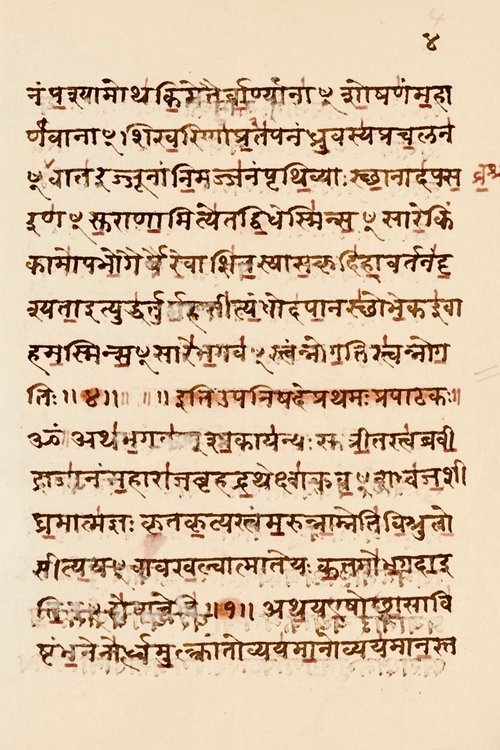 ४
नं पश्यामोथ किमेतैर्वाण्यांनाꣳ शोषणं महा
र्णवानाꣳ शिखरिणां प्रतपनं ध्रुवस्य प्रचलनं
ꣳ वातरज्जूनां निमज्जनं पृथिव्याः स्थानादपस
रणꣳ सुराणामित्येतद्विधेस्मिन्सꣳसारे किं
कामोपभोगैर्यैरेवाशितस्यासकृदिहावर्तनं दृ
श्यता इत्युद्धर्तुमर्हसीत्यंधोदपानस्थो भेक इवा
हमस्मिन्सꣳसारे भगवꣳस्त्वन्नो गतिस्त्वन्नो ग
तिः॥४॥ ॥॥इति उपनिषदे प्रथमः प्रपाठकः॥
ॐ अथ भगवान् शाकायन्यः सु प्रीतस्त्वब्रवी
द्राजानं महाराज बृहद्रथेक्ष्वाकुवꣳशध्वज शी
घ्रमात्मज्ञः कृतकृत्यस्त्वं मरुन्नाम्नेति विश्रुतो
सीत्ययꣳ वाव खल्वात्मा ते यः कतमो भगवा इ
ति होवाचेति॥१॥ अथ य एषोच्छ्वासावि
ष्टंभनेनोर्ध्वमुत्क्रांतो व्ययमानोव्ययमानस्त